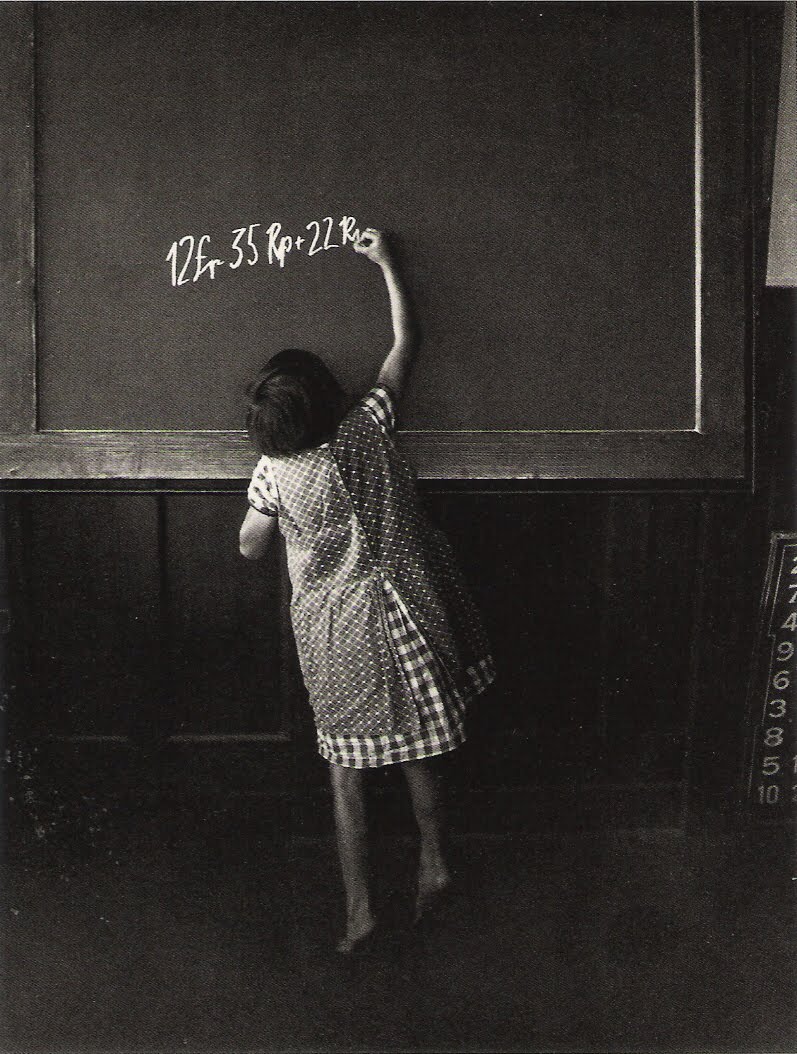 12 Fr 35 Rp + 22 R
2
7
4
9
6
3
8
5 1
10